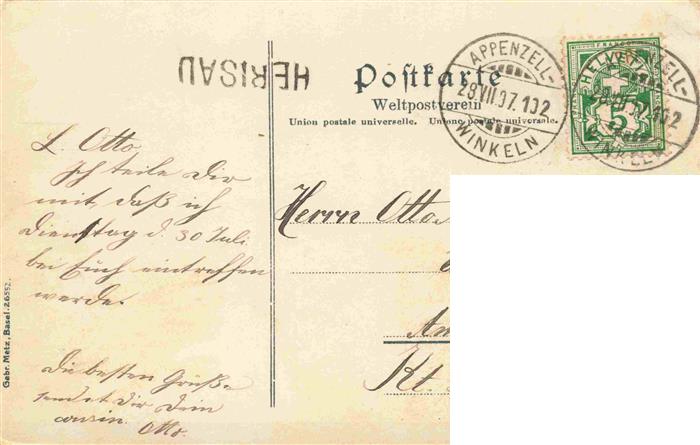 HERISAU
Postkarte
Weltpostverein
Union postale universelle. Unione postale universale.
APPENZELL-
28.VII.07.10
WINKELN
HELVETIA
FRANCO
5
APPENZELL-
WINKELN
L. Otto
Ich teile Dir
mit, daß ich
Dienstag d. 30 Juli
bei Euch eintreffen
werde.
Die besten Grüße
sendet Dir Dein
cousin
Otto.
Herrn Otto
Kt.
Gebr. Metz, Basel. 26552.